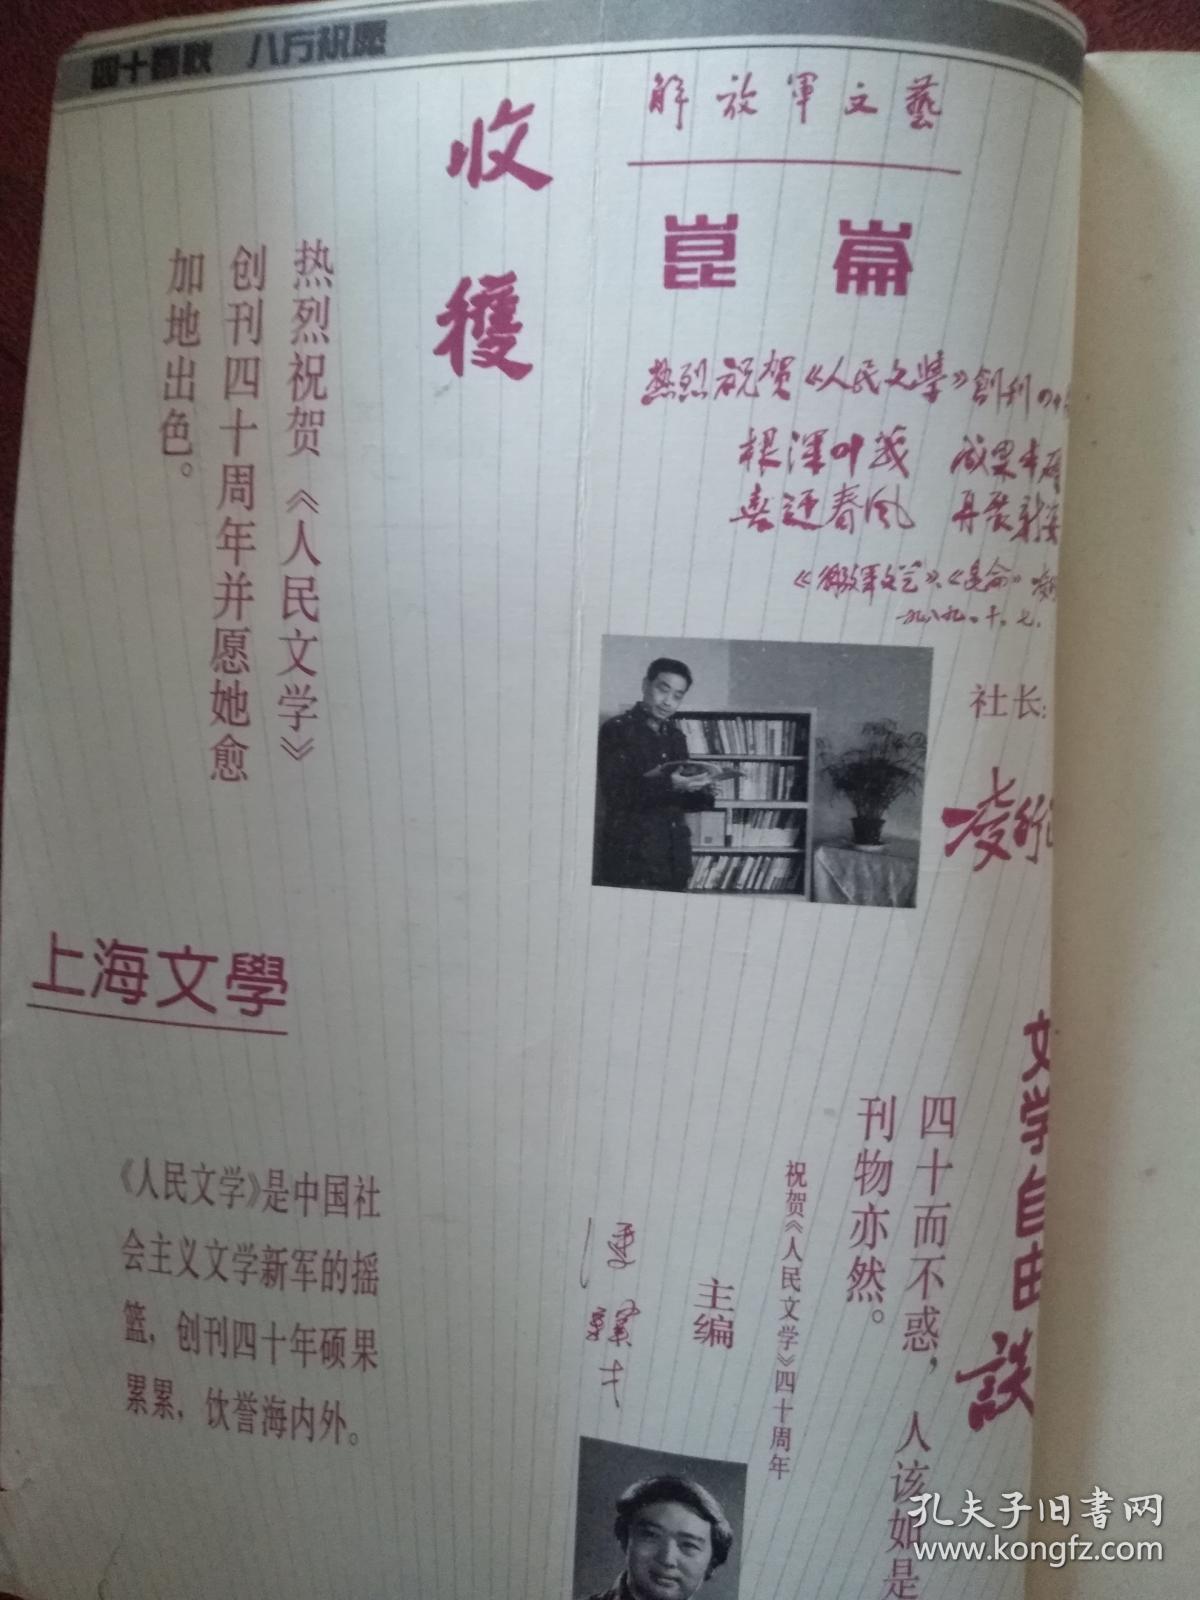 四十春秋 八方祝愿
收
穫
热烈祝贺《人民文学》
创刊四十周年并愿她愈
加地出色。
解放軍文藝
崑崙
热烈祝贺《人民文学》創刊四十
根深叶茂 成果丰硕
喜迎春风 再展新姿
《解放军文艺》、《昆仑》
一九八九.十.七.
社长:
凌行
上海文學
《人民文学》是中国社
会主义文学新军的摇
篮,创刊四十年硕果
累累,饮誉海内外。
文学自由談
四十而不惑,人该如是
刊物亦然。
祝贺《人民文学》四十周年
主编
孔夫子旧书网
www.kongfz.com